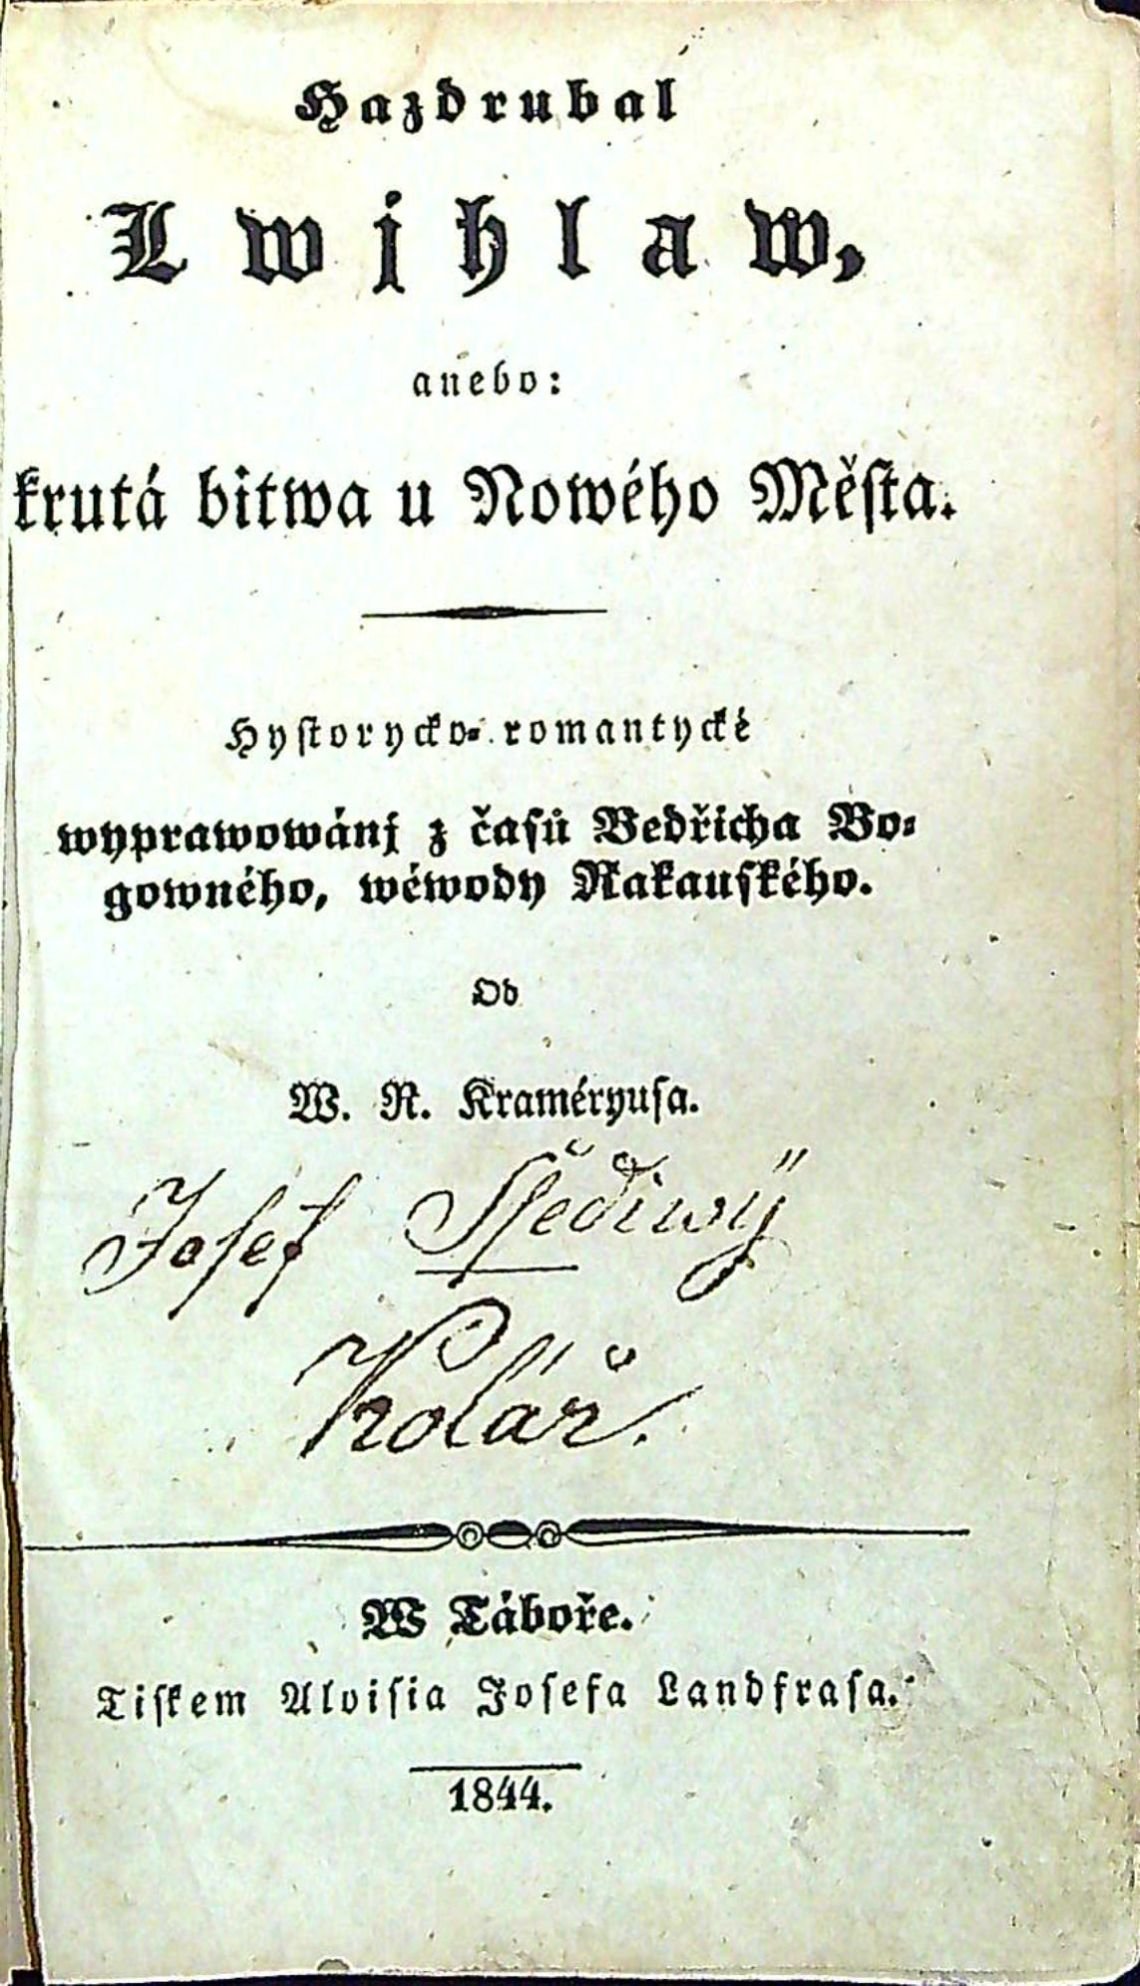 Hazdrubal
Lwjhlaw,
anebo:
krutá bitwa u Nowého Města.
Hystorycko-romantycké
wyprawowánj z časů Bedřicha Bo-
gowného, wéwody Rakauského.
Od
W. R. Kraméryusa.
Josef Sſediwý
Kolář.
W Táboře.
Tiskem Aloisia Josefa Landfrasa.
1844.